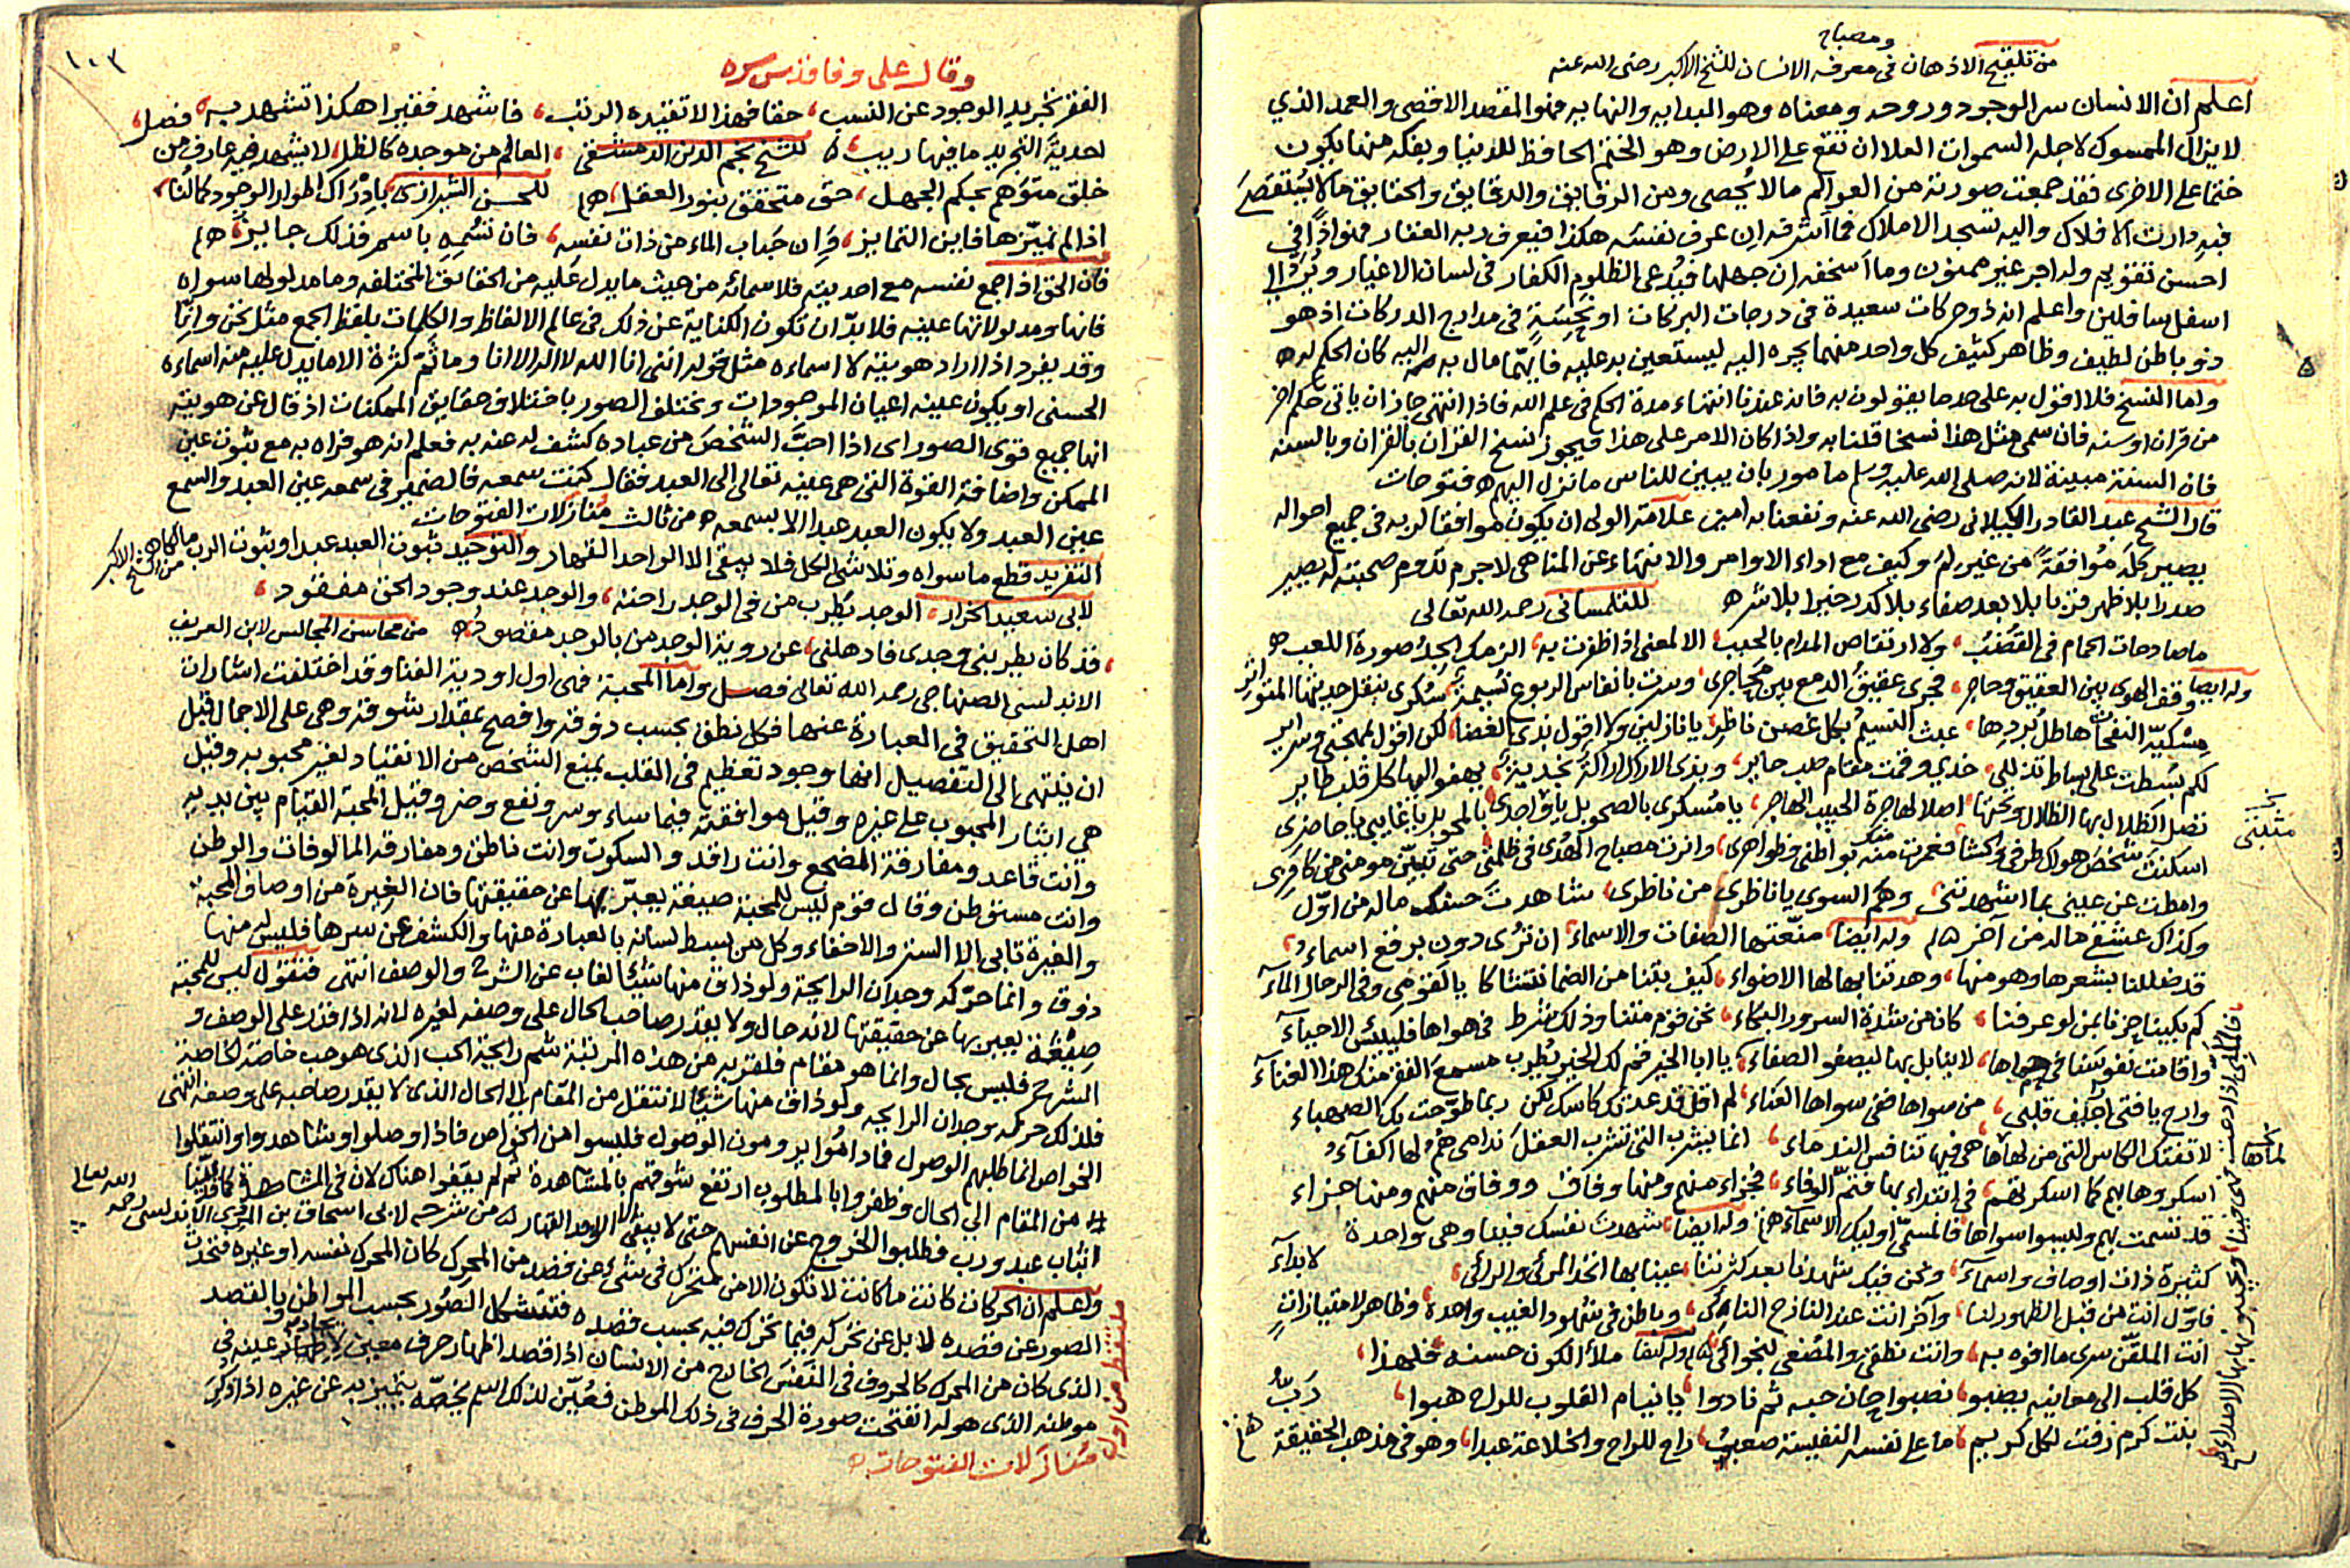 ومصباح
من تلقيح الاذهان فى معرفة الانسان للشيخ الاكبر رضى الله عنه
اعلم ان الانسان سر الوجود وروحه ومعناه وهو البدايه والنهايه فهو المقصد الاقصى والعمد الذي
لايزال الممسوك لاجله السموات العلا ان تقع على الارض وهو الختم الحافظ للدنيا ويفكه منها يكون
ختما على الاخرى فقد جمعت صورته من العوالم مالا يحصى ومن الرقايق والدقايق والحقايق مالا يستقصى
فبه دارت الافلاك واليه تسجد الاملاك فما اشرفه ان عرف نفسه هكذا فيعرف ربه الغفار فهو اذًا فى
احسن تقويم وله اجر غير ممنون وما اسخفه ان جهلها فيدعى الظلوم الكفار فى لسان الاغيار ويرد الى
اسفل سافلين واعلم انه ذو حركات سعيدة فى درجات البركات او نحسة فى مدارج الدركات اذ هو
ذو باطن لطيف وظاهر كثيف كل واحد منهما يجره اليه ليستعين به عليه فايهما مال به اليه كان الحكم له
واما النسخ فلا اقول به على حد ما يقولون به فانه عندنا انتهاء مدة الحكم فى علم الله فاذا انتهى جاز ان ياتى حكم اخر
من قران او سنه فان سمى مثل هذا نسخا قلنا به واذا كان الامر على هذا فيجوز نسخ القران بالقران وبالسنه
فان السنة مبينة لانه صلى الله عليه وسلم مامور بان يبين للناس ما نزل اليهم فتوحات
قال الشيخ عبد القادر الكيلانى رضى الله عنه ونفعنا به امين علامة الولى ان يكون موافقا لربه فى جميع احواله
يصير كله موافقة من غير لم وكيف مع اداء الاوامر والانتهاء عن المناهى لاجرم تدوم صحبته له يصير
صدرا بلا ظهر قربا بلا بعد صفاء بلا كدر خيرا بلا شر للتلمسانى رحمه الله تعالى
ما صادحات الحمام فى القضب ولا ارتقاص المدام بالحبب الا لمعنى اذا ظفرت به الزمك الجد صورة اللعب
وله ايضا وقف الهوى بين العقيق وحاجر فجرى عقيق الدمع بين محاجرى وسرت بانفاس الربوع نسيمة سكرى ينقل حديثها المتواتر
مسكية النفحات هاطل بردها عبث النسيم بكل غصن ناظر يا نازلين ولا اقول بذى الغضا لكن اقول بمهجتى وسراير
لكم بسطت على بساط تذللى خدي وقمت مقام صب حاير وبذى الاراك اراكة نجدية يهفو اليها كل قلب طاير
تضل الظلال بها الظلال وتحتها اصلا لهاجرة الحبيب الهاجر يا مسكرى بالصحو بل يا واجدى بالمحو بل يا غايبى يا حاضرى
اسكنت شخص هواك طرفى والحشا فعمرت منك بواطنى وظواهرى وانرت مصباح الهدى فى ظلمتى حتى تبين مومنى من كافرى
وامطت عن عينى بما اشهدتنى وهم السوى يا ناظرى من ناظرى شاهدت حسنك ماله من اول
وكذاك عشقى ماله من آخر وله ايضا منعتها الصفات والاسماء ان ترى دون برقع اسماء
قد ضللنا بشعرها وهو منها وهدتنا بها لها الاضواء كيف بتنا من الضما نتشاكا يا لقومى وفى الرحال الماء
كم بكينا حزنا بمن لو عرفنا كان من شدة السرور البكاء نحن قوم متنا وذلك شرط فى هواها فلييئس الاحياء
واقامت نفوسنا فى حماها لا بنا بل بها ليصفو الصفاء يا ابا الخير قم لك الخير يطرب مسمع الفقر منك هذا الغناء
وادح يا فتى اجلف قلبى من سواها ففى سواها الغناء لم اقل قد عدتك كاسك لكن ربما طوحت بك الصهباء
لا تفتك الكاس التى من لماها هى فيها تنافس الندماء انما يشرب التى تشرب العقل ندامى هم لها اكفاء
اسكروها بهم كما اسكرتهم فى ابتداء بها فتم الوفاء فجزاء منهم ومنها وفاق ووفاق منهم ومنها جزاء
قد تسمت بهم وليسوا سواها فالمسمى اوليك الاسماء وله ايضا شهدت نفسك فينا وهى واحدة
كثيرة ذات اوصاف واسماء ونحن فيك شهدنا بعد كثرتنا عينا بها اتحد المرئى والرائى
فاول انت من قبل الظهور لنا وآخر انت عند النازح النائى وباطن فى شهود الغيب واحدة وظاهر لامتيازات
انت الملقن سرى ما افوه به وانت نطقى والمصغى لنجوائى وله ايضا ملأ الكون حسنه فلهذا
كل قلب الى معانيه يصبو نصبوا حان حبه ثم نادوا يا نيام القلوب للراح هبوا
بنت كرم زفت لكل كريم ما على نفسه النفيسة صعب راح للراح والخلاعة عبدا وهو فى مذهب الحقيقة رب
١٠٣
وقال على وفا قدس سره
الفقر تجريد الوجود عن النسب حقا فهذا لا تقيده الرتب فاشهد فقيرا هكذا تشهد به فضل
احدية التجريد ما فيها ريب للشيخ نجم الدين الدمشقى العالم من موجده كالظل لا يشهد فيه عارف من
خلق متوهم بحكم الجهل حق متحقق بنور العقل للحسن الشيرازى بادراك اطوار الوجود كمالنا
اذا لم نميزها فاين التمايز وان حباب الماء من ذات نفسه فان نسمه باسم فذلك جايز
فان الحق اذا جمع نفسه مع احديته فلاسمائه من حيث ما يدل عليه من الحقايق المختلفه وما مدلولها سواه
فانها ومدلولاتها عينه فلا بد ان تكون الكناية عن ذلك فى عالم الالفاظ والكلمات بلفظ الجمع مثل نحن وانا
وقد يفرد اذا اراد هويته لا اسماءه مثل قوله اننى انا الله لا اله الا انا وما ثم كثرة الا ما يدل عليه منه اسماءه
الحسنى او يكون عينه اعيان الموجودات وتختلف الصور باختلاف حقايق الممكنات اذ قال عن هويته
انها جميع قوى الصور اى اذا احب الشخص من عباده كشف له عنه به فعلم انه هو فراه به مع ثبوت عين
الممكن واضافة القوة التى هى عينه تعالى الى العبد فقال كنت سمعه فالضمير فى سمعه عين العبد والسمع
عين العبد ولا يكون العبد عبدا الا بسمعه من ثالث منازلات الفتوحات
التفريد قطع ما سواه وتلاشى الكل فلا يبقى الا الواحد القهار والتوحيد ثبوت العبد عبدا وثبوت الرب
لابى سعيد الخراز الوجد يطرب من فى الوجد راحته والوجد عند وجود الحق مفقود
قد كان يطربنى وجدى فاذهلنى عن روية الوجد من بالوجد مقصود من محاسن المجالس لابن العريف
الاندلسى الصنهاجى رحمه الله تعالى فصل واما المحبة فهى اول اودية الفنا وقد اختلفت اشارات
اهل التحقيق فى العبارة عنها فكل نطق بحسب ذوقه وافصح بمقدار شوقه وهى على الاجمال قبل
ان ينتهى الى التفصيل انها وجود تعظيم فى القلب يمنع الشخص من الانقياد لغير محبوبه وقيل
هى ايثار المحبوب على غيره وقيل موافقته فيما ساء وسر ونفع وضر وقيل المحبة القيام بين يديه
وانت قاعد ومفارقة المضجع وانت راقد والسكوت وانت ناطق ومفارقة المالوفات والوطن
وانت مستوطن وقال قوم ليس للمحبة صيغة يعبر بها عن حقيقتها فان الغيرة من اوصاف المحبة
والغيرة تابى الا الستر والاخفاء وكل من بسط لسانه بالعبارة عنها والكشف عن سرها فليس له منها
ذوق وانما حركه وجدان الرايحة ولو ذاق منها شيئا لغاب عن الشرح والوصف انتهى فنقول ليس للمحبة
صيغة يعبر بها عن حقيقتها لانه حال ولا يقدر صاحب الحال على وصفه لغيره لانه اذا قدر على الوصف و
الشرح فليس بحال وانما هو مقام فلقربه من هذه المرتبة شم رايحة الحب الذى هو حب خاصة الخاصة
فلذلك حركه وجدان الرايحه ولو ذاق منها شيئا لانتقل من المقام الى الحال الذى لا يقدر صاحبه على وصفه انتهى
الخواص انما طلبهم الوصول فما داموا يرومون الوصول فليسوا من الخواص فاذا وصلوا وشاهدوا وانتقلوا
من المقام الى الحال وظفروا بالمطلوب ارتفع شوقهم بالمشاهدة ثم لم يقفوا هناك لان فى المشاهدة كما قلنا
اثبات عبد ورب فطلبوا الخروج عن انفسهم حتى لا يبقى الا الواحد القهار من شرحه لابى اسحاق بن الاندلسى رحمه الله تعالى
واعلم ان الحركات كانت ما كانت لا تكون الا من متحرك فى شىء عن قصد من المحرك كان المحرك نفسه او غيره فتحدث
الصور عن قصده لا بل عن تحركه فيما تحرك فيه بحسب قصده فتتشكل الصور بحسب المواطن وبالقصد
الذى كان من المحرك كالحروف فى النفس الخارج من الانسان اذا قصد اظهار حرف معين لاظهار عينه فى
موطنه الذى هو له انفتحت صورة الحرف فى ذلك الموطن فعين لذلك اسم يخصه يتميز به عن غيره اذا ذكر
منازلات الفتوحات